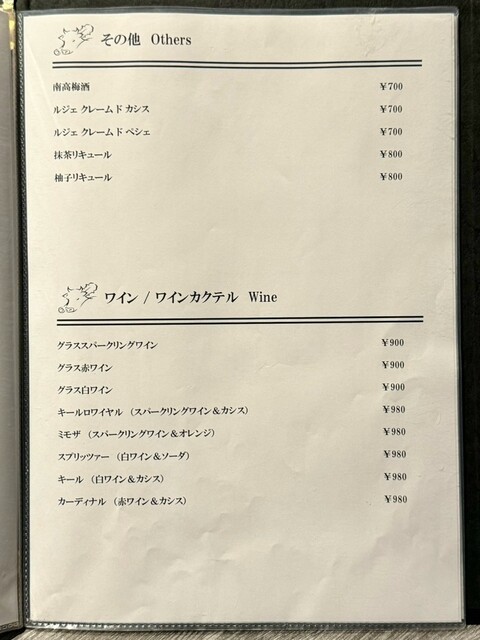 その他 Others
南高梅酒 ￥700
ルジェ クレームド カシス ￥700
ルジェ クレームド ペシェ ￥700
抹茶リキュール ￥800
柚子リキュール ￥800
ワイン / ワインカクテル Wine
グラススパークリングワイン ￥900
グラス赤ワイン ￥900
グラス白ワイン ￥900
キールロワイヤル （スパークリングワイン＆カシス） ￥980
ミモザ （スパークリングワイン＆オレンジ） ￥980
スプリッツァー （白ワイン＆ソーダ） ￥980
キール （白ワイン＆カシス） ￥980
カーディナル （赤ワイン＆カシス） ￥980